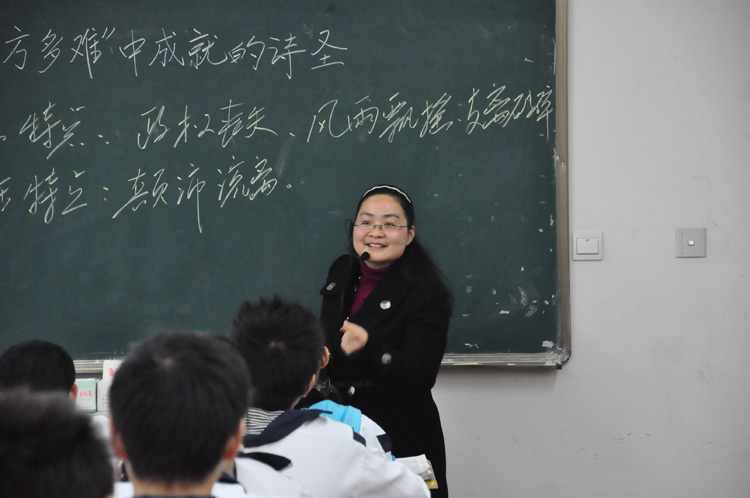 方多难"中成就的诗圣
特点：政权丧失、风雨飘摇、支离破碎
特点：颠沛流离。